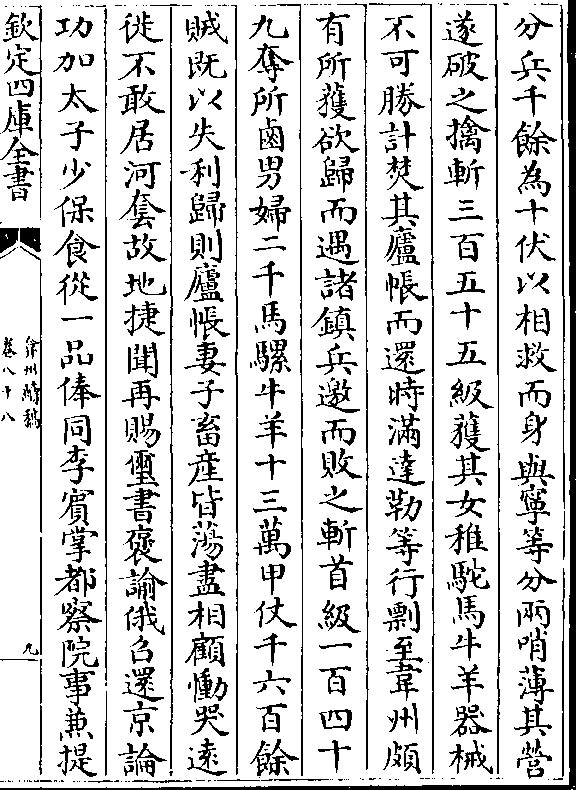 分兵千餘為十伏以相救而身與寧等分兩哨薄其營
遂破之擒斬三百五十五級獲其女稚駝馬牛羊器械
不可勝計焚其廬帳而還時滿達勒等行剽至韋州頗
有所獲欲歸而遇諸鎮兵邀而敗之斬首級一百四十
九奪所鹵男婦二千馬騾牛羊十三萬甲仗千六百餘
賊既以失利歸則廬帳妻子畜産皆蕩盡相顧慟哭遠
徙不敢居河套故地捷聞再賜璽書褒諭俄召還京論
功加太子少保食從一品俸同李賓掌都察院事兼提
欽定四庫全書
弇州續稿
卷八十八
九